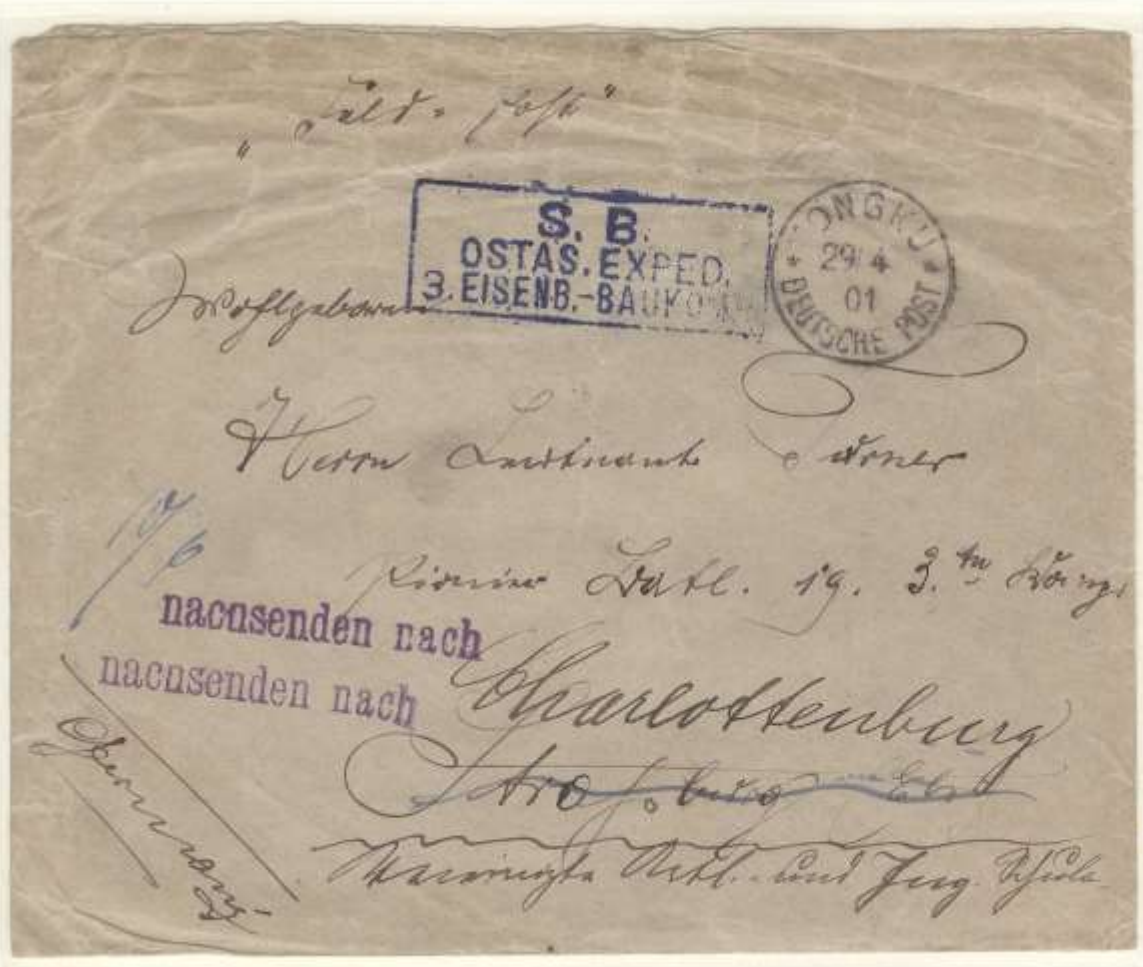 "Feld-Post"
S. B.
OSTAS. EXPED.
3. EISENB.-BAUKO
TONGKU
29/4
01
* DEUTSCHE POST *
Wohlgeboren
Herrn Leutnant
Pionier Batl. 19. 3.te Komp.
nachsenden nach
nachsenden nach
Charlottenburg
Straßburg Els.
Vereinigte Artl.- und Ing. Schule
Germany